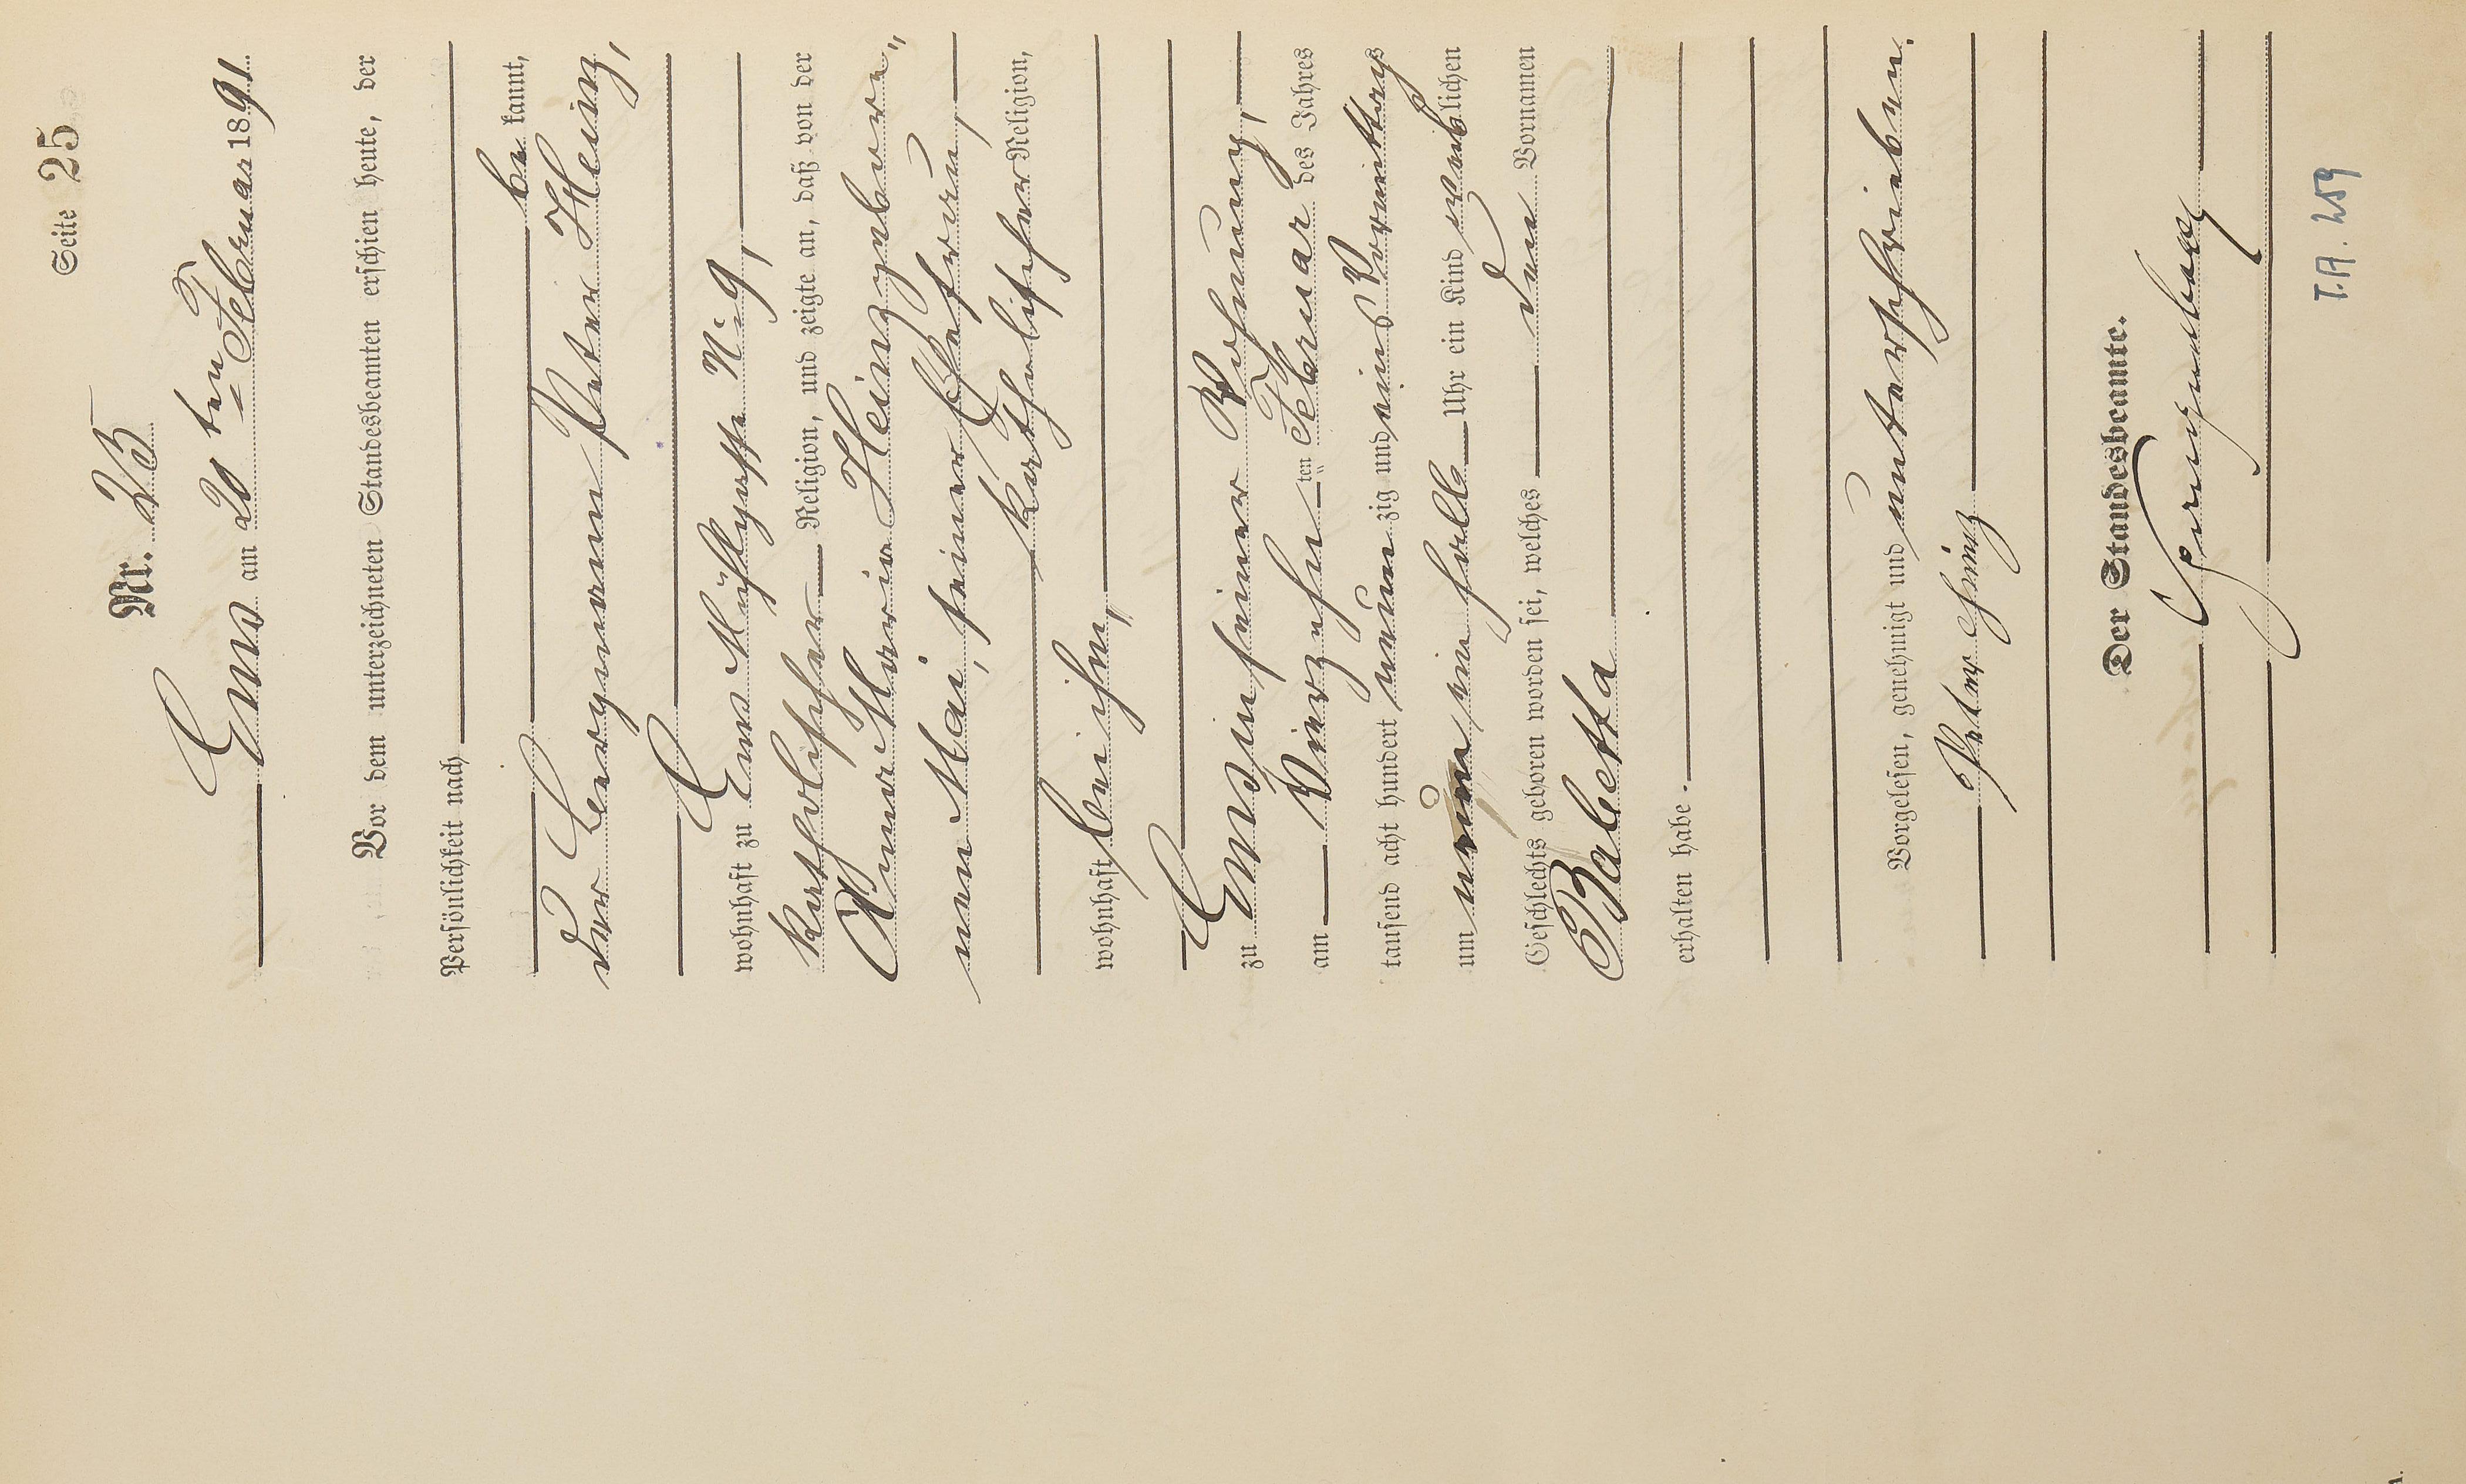 Seite 25
Nr. 25
Ems am 20ten Februar 1891
Vor dem unterzeichneten Standesbeamten erschien heute, der
Persönlichkeit nach
bekannt,
der Bergmann Peter Heinz,
wohnhaft zu Ems Mühlgasse No 9,
katholischer Religion, und zeigte an, daß von der
Anna Maria Heinz gebore-
nen Mai, seiner Ehefrau,
katholischer Religion,
wohnhaft bei ihm,
zu Ems in seiner Wohnung,
am Vierzehnten Februar des Jahres
tausend acht hundert neunzig und eins Vormittags
um ein halb Uhr ein Kind weiblichen
Geschlechts geboren worden sei, welches den Vornamen
Babetta
erhalten habe.
Vorgelesen, genehmigt und unterschrieben.
Peter Heinz
Der Standesbeamte.
T.A. 259